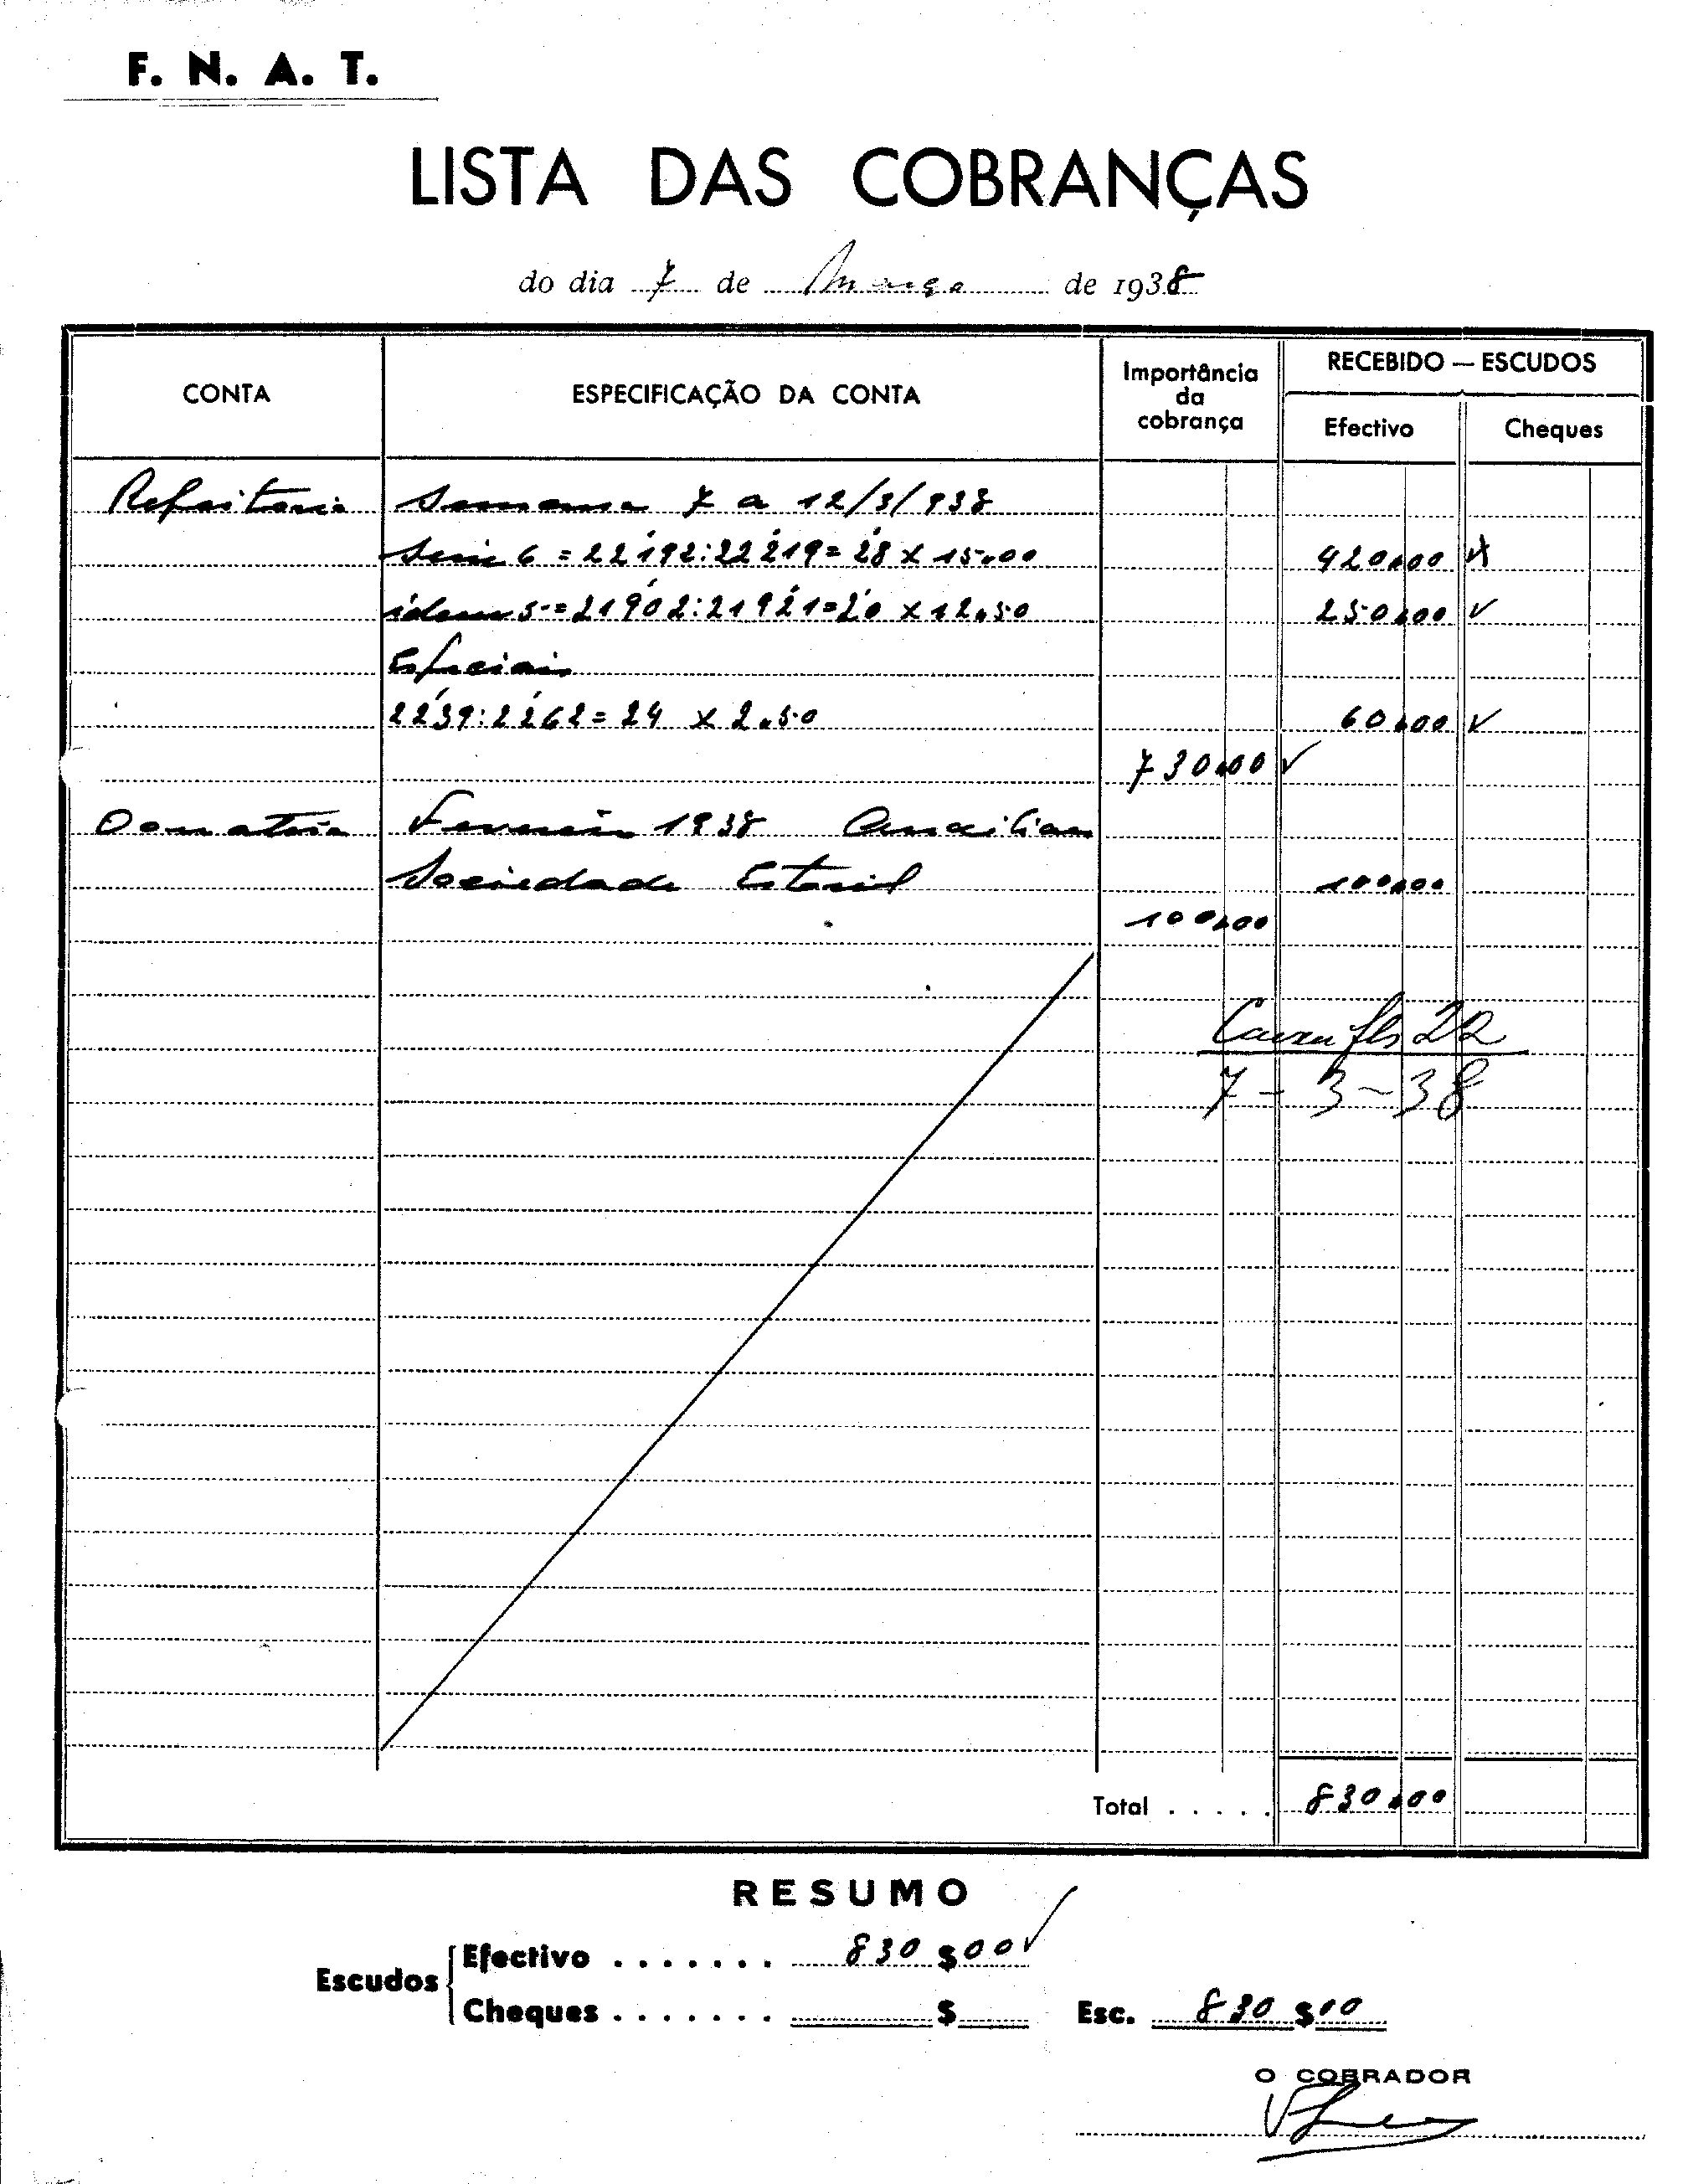 F. N. A. T.
LISTA DAS COBRANÇAS
do dia 7 de Março de 1938
CONTA
ESPECIFICAÇÃO DA CONTA
Importância da cobrança
RECEBIDO — ESCUDOS
Efectivo
Cheques
Refeitorio Semana 7 a 12/3/938
Serie 6 = 22192:22219 = 28 x 15.00 420.00
idem 5 = 21902:21921 = 20 x 12.50 250.00
Especiais
2239:2262 = 24 x 2.50 60.00
730.00
Fevereiro 1938
Sociedade Estoril 100.00
100.00
Caixa fls 22
7-3-38
Total . . . . . 830.00
RESUMO
Escudos
Efectivo . . . . . . . 830 $ 00
Cheques . . . . . . . $
Esc. 830 $ 00
O COBRADOR